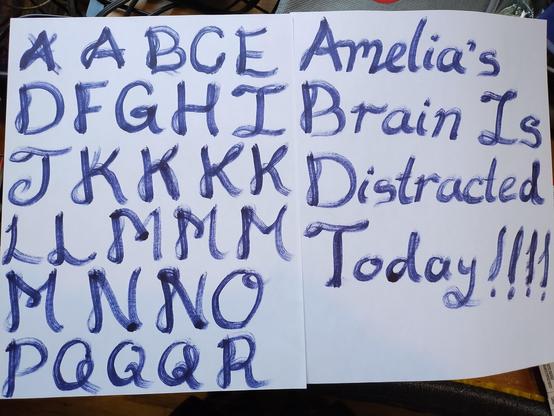 A A B C E
D F G H I
J K K K K
L L M M M
M N N O
P Q Q Q R
Amelia's
Brain Is
Distracted
Today!!!!